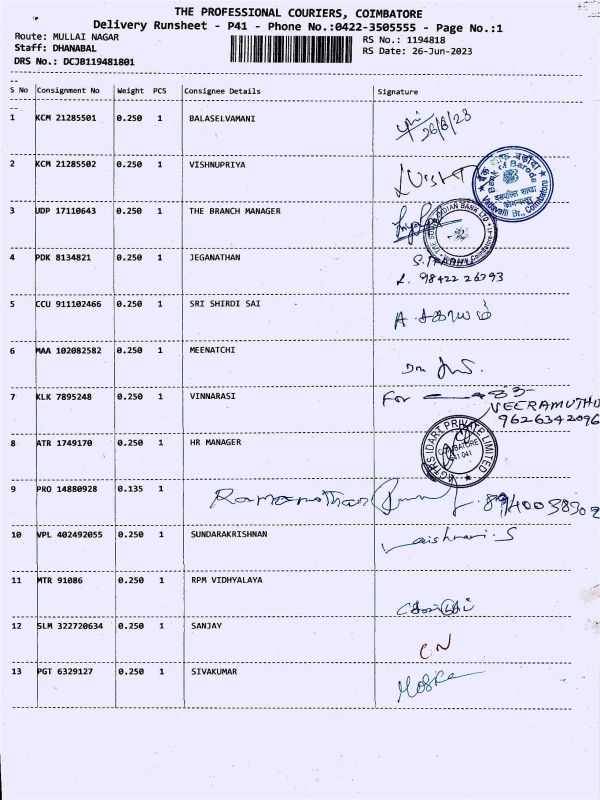 THE PROFESSIONAL COURIERS, COIMBATORE
Delivery Runsheet - P41 - Phone No.:0422-3505555 - Page No.:1
Route: MULLAI NAGAR
RS No.: 1194818
Staff: DHANABAL
RS Date: 26-Jun-2023
DRS No.: DCJB119481801
S No Consignment No Weight PCS Consignee Details Signature
1 KCM 21285501 0.250 1 BALASELVAMANI 26/6/23
2 KCM 21285502 0.250 1 VISHNUPRIYA
Bank of Baroda
3 UDP 17110643 0.250 1 THE BRANCH MANAGER
4 PDK 8134821 0.250 1 JEGANATHAN
98422 26293
5 CCU 911102466 0.250 1 SRI SHIRDI SAI
6 MAA 102082582 0.250 1 MEENATCHI
7 KLK 7895248 0.250 1 VINNARASI For
VEERAMUTHU
9626342096
8 ATR 1749170 0.250 1 HR MANAGER
IDART PRIVATE LIMITED
COIMBATORE
641 041
9 PRO 14880928 0.135 1 Ramanathan
10 VPL 402492055 0.250 1 SUNDARAKRISHNAN Vaishnavi.S
11 MTR 91086 0.250 1 RPM VIDHYALAYA
12 SLM 322720634 0.250 1 SANJAY CN
13 PGT 6329127 0.250 1 SIVAKUMAR